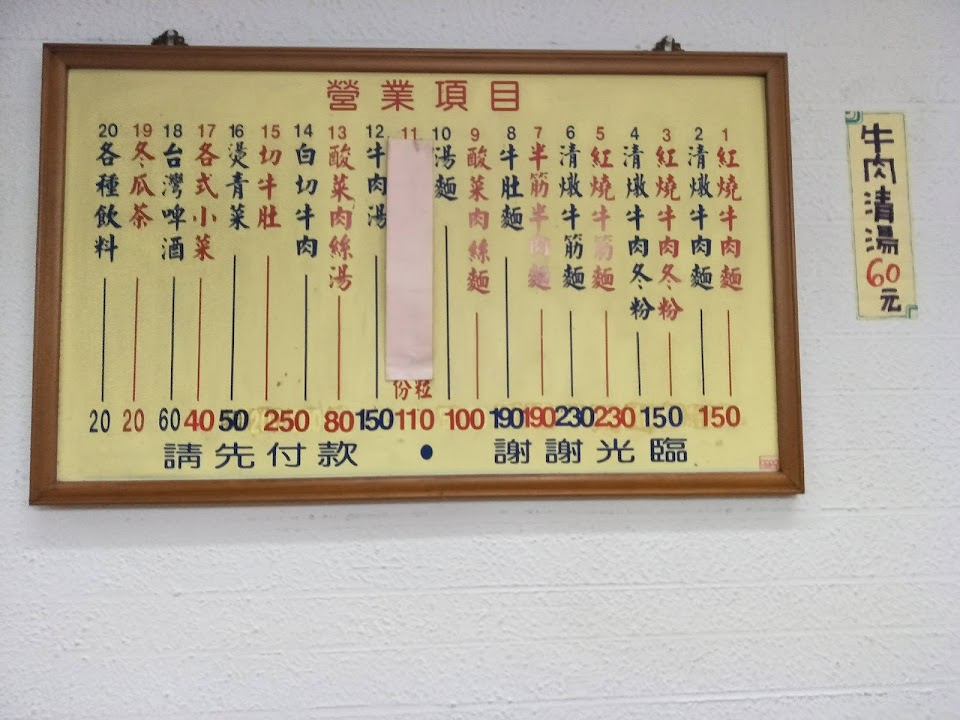 營業項目
1 紅燒牛肉麵
2 清燉牛肉麵
3 紅燒牛肉冬粉
4 清燉牛肉冬粉
5 紅燒牛筋麵
6 清燉牛筋麵
7 半筋半肉麵
8 牛肚麵
9 酸菜肉絲麵
10 湯麵
11
12 牛肉湯
13 酸菜肉絲湯
14 白切牛肉
15 切牛肚
16 燙青菜
17 各式小菜
18 台灣啤酒
19 冬瓜茶
20 各種飲料
份粒
20 20 60 40 50 250 80 150 110 100 190 190 230 230 150 150
請先付款・謝謝光臨
牛肉清湯60元